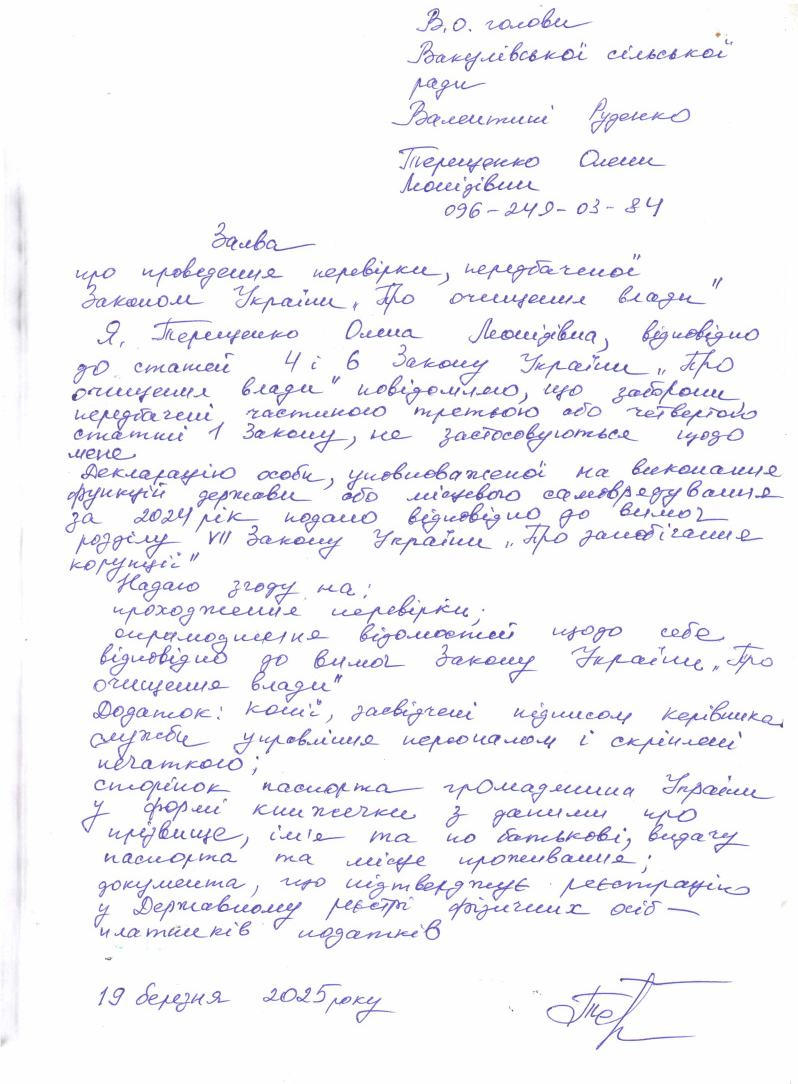 В.о. голови
Вакулівської сільської
ради
Валентині Руденко
Терещенко Олени
Леонідівни
096-249-03-84
Заява
про проведення перевірки, передбаченої
Законом України „Про очищення влади"
Я, Терещенко Олена Леонідівна, відповідно
до статей 4 і 6 Закону України „Про
очищення влади" повідомляю, що заборони,
передбачені частиною третьою або четвертою
статті 1 Закону, не застосовуються щодо
мене
Декларацію особи, уповноваженої на виконання
функцій держави або місцевого самоврядування
за 2024 рік подано відповідно до вимог
розділу VII Закону України „Про запобігання
корупції"
Надаю згоду на:
проходження перевірки;
оприлюднення відомостей щодо себе
відповідно до вимог Закону України „Про
очищення влади"
Додаток: копії, засвідчені підписом керівника
служби управління персоналом і скріплені
печаткою;
сторінок паспорта громадянина України
у формі книжечки з даними про
прізвище, ім'я та по батькові, видачу
паспорта та місце проживання;
документа, що підтверджує реєстрацію
у Державному реєстрі фізичних осіб —
платників податків
19 березня 2025 року
Тер